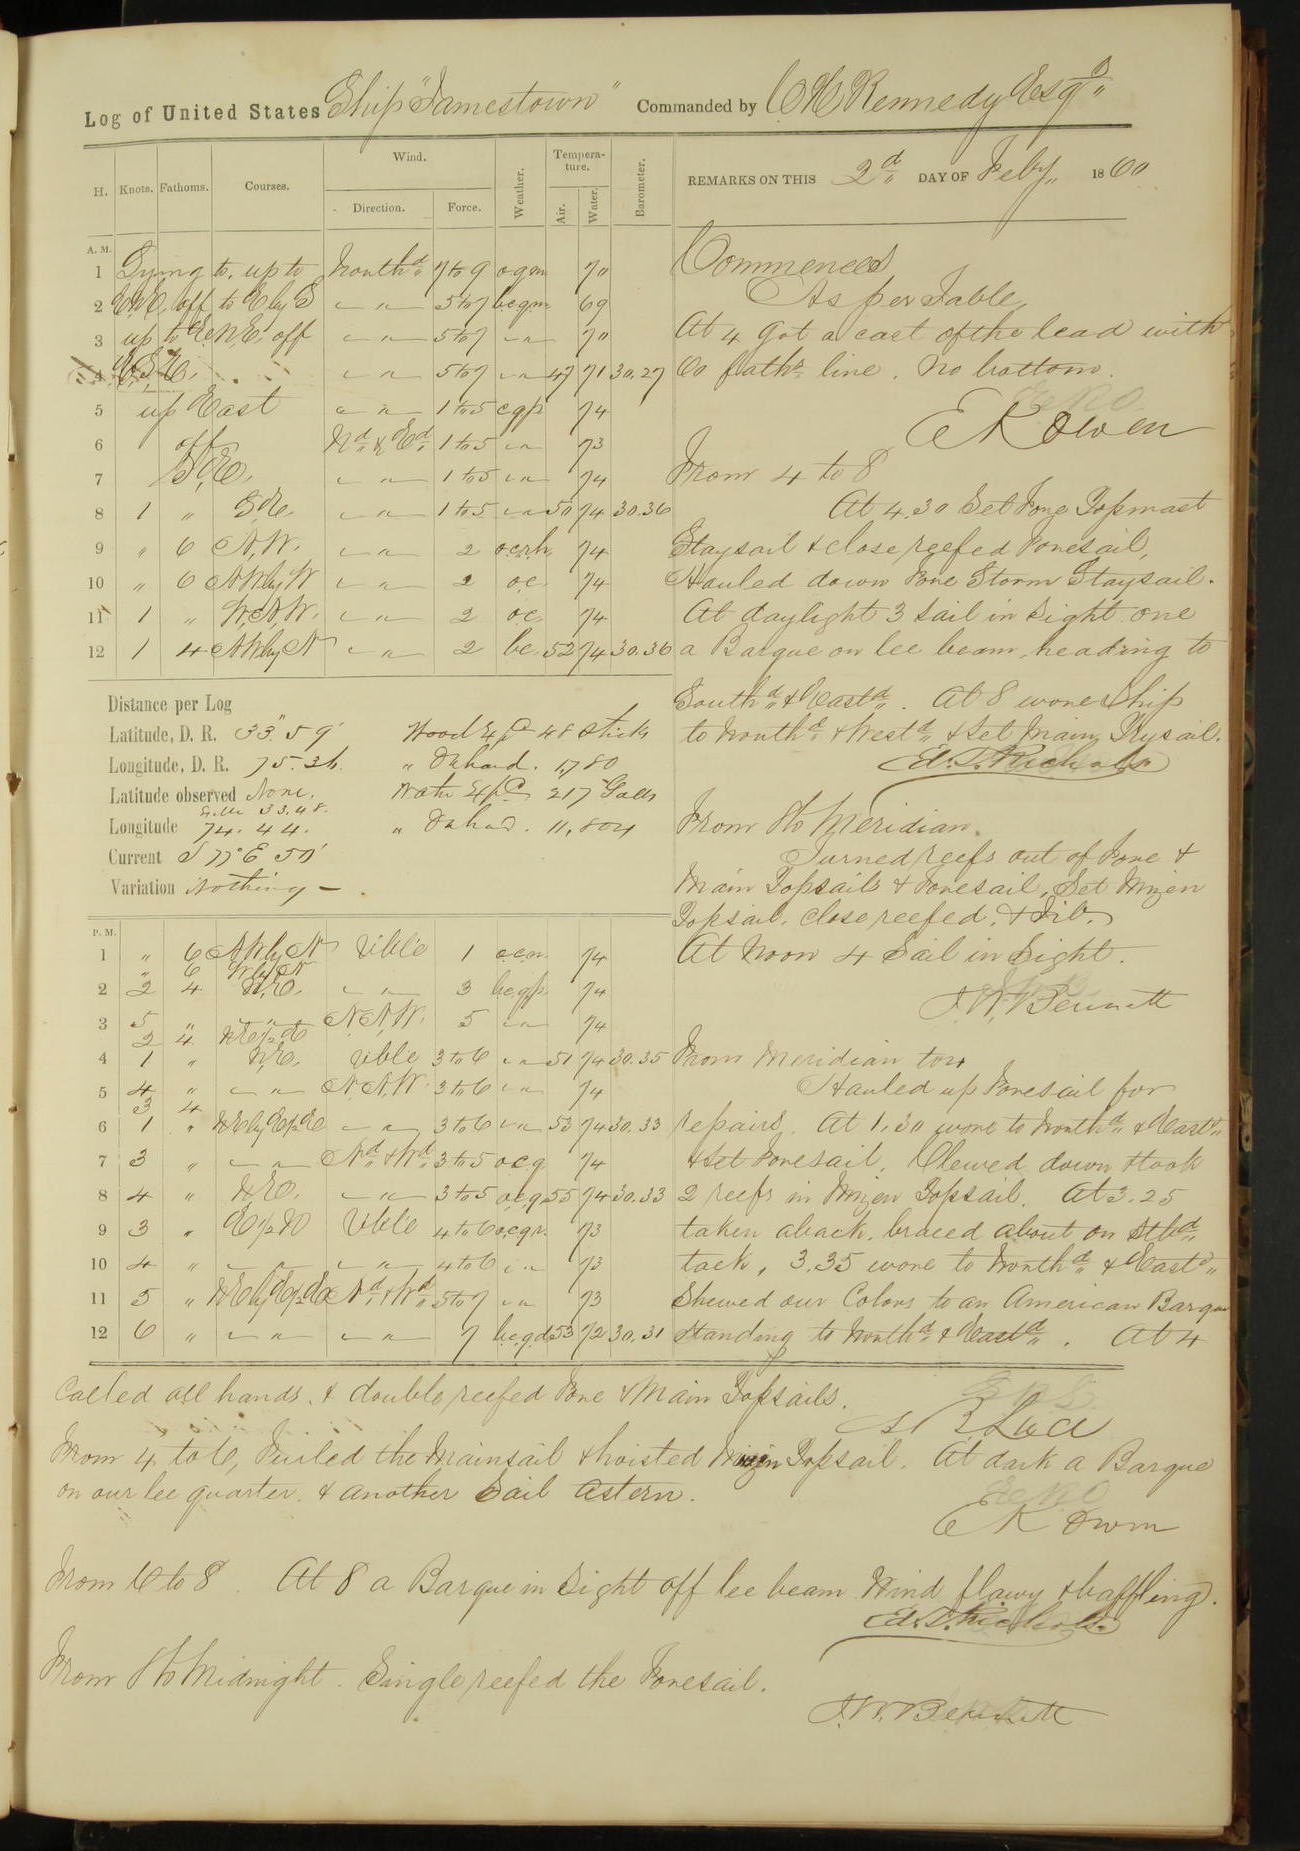 Log of United States Ship "Jamestown" Commanded by C H Kennedy Esqr
H. Knots. Fathoms. Courses. Wind. Direction. Force. Weather. Tempera-ture. Air. Water. Barometer. REMARKS ON THIS 2d DAY OF Feby, 1860
A. M.
1 Lying to, up to Northd 7 to 9 ogm 70
2 ENE, off to E by S " " 5 to 7 bcgm 69
3 up to E.N.E. off " " 5 to 7 " " 70
4 E.S.E. " " 5 to 7 " " 47 71 30.27
5 up East " " 1 to 5 cgp 74
6 off Nd & Ed 1 to 5 " " 73
7 S.E. " " 1 to 5 " " 74
8 1 " S.E. " " 1 to 5 " " 50 74 30.36
9 " 6 N.W. " " 2 74
10 " 6 NW by W " " 2 oc 74
11 1 " W.N.W. " " 2 oc 74
12 1 4 NW by N " " 2 bc 52 74 30.36
Commences
As per Table,
At 4 got a cast of the lead with
60 faths line. No bottom.
E K Owen
From 4 to 8
At 4.30 Set Fore Topmast
Staysail & close reefed Foresail,
Hauled down Fore Storm Staysail.
At daylight 3 sail in sight one
a Barque on lee beam, heading to
Southd & Eastd. At 8 wore Ship
to Northd & Westd & Set Main Trysail.
Ed. T. Nichols
From 8 to Meridian.
Turned reefs out of Fore &
Main Topsails & Foresail, Set Mizen
Topsail, close reefed, & Jib.
At Noon 4 Sail in Sight.
J. W. Bennett
Distance per Log
Latitude, D. R. 33° 59'
Longitude, D. R. 75.36
Latitude observed None.
33.48.
Longitude 74. 44.
Current S 77° E 50'
Variation Nothing —
Wood Exp 48 Sticks
" On hand. 1,780
Water Exp 217 Galls
" On hand. 11,804
P. M.
1 " 6 NW by N Vble 1 74
" 6 W by N
2 2 4 N.E. " " 3 bcgp 74
3 5 " " " N.N.W. 5 " " 74
2 4
4 1 " N.E. Vble 3 to 6 " " 51 74 30.35
5 4 " " " N.N.W. 3 to 6 " " 74
3 4
6 1 " NE by E½E " " 3 to 6 " " 53 74 30.33
7 3 " " " Nd & Wd 3 to 5 ocg 74
8 4 " N.E. " " 3 to 5 ocg 55 74 30.33
9 3 " E½N Vble 4 to 6 ocgr 73
10 4 " " " " " 4 to 6 " " 73
11 5 " NE by E½E Nd & Wd 5 to 7 " " 73
12 6 " " " " " 7 bcgd 53 72 30.31
From Meridian to 4
Hauled up Foresail for
repairs. At 1.30 wore to Northd & Eastd
& Set Foresail. Clewed down & took
2 reefs in Mizen Topsail. At 3.25
taken aback, braced about on Stbd
tack, 3.35 wore to Northd & Eastd
Shewed our Colors to an American Barque
standing to Northd & Eastd. At 4
Called all hands, & double reefed Fore & Main Topsails.
From 4 to 6, Furled the Mainsail & hoisted Mizen Topsail. At dark a Barque
on our lee quarter, & another Sail astern.
E K Owen
From 6 to 8. At 8 a Barque in Sight off lee beam Wind flawy & baffling.
Ed. T. Nichols
From 8 to Midnight. Single reefed the Foresail.
J. W. Bennett